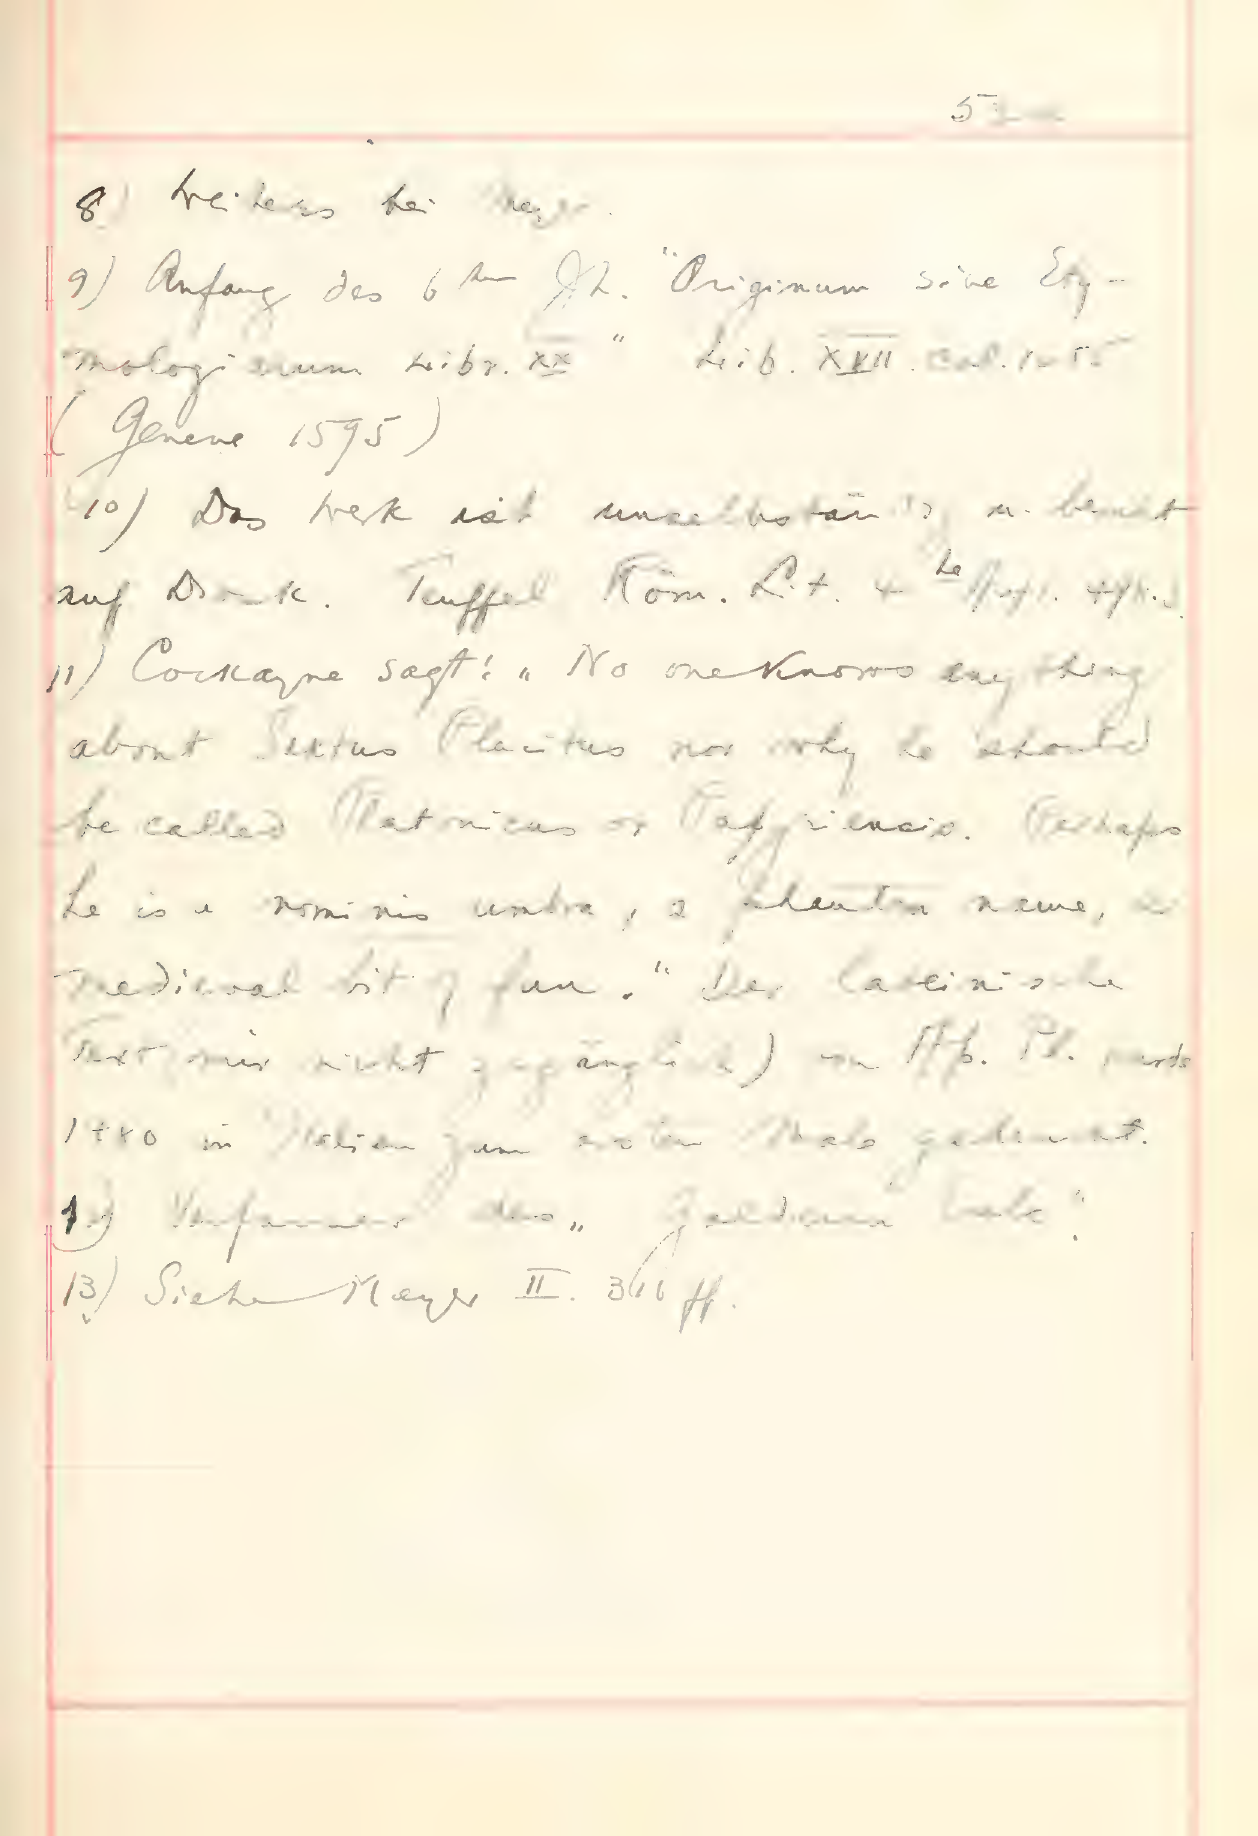 8) Weiteres bei Meyer.
9) Anfang des 6ten Jh. "Originum sive Ety-
mologiarum Libr. XX" Lib. XVII. col.
(Geneve 1595)
10) Das Werk ist unselbständig u. beruht
auf Diosk. Teuffel Röm. Lit. 4te Aufl.
11) Cockayne sagt: „No one knows anything
about Sextus Placitus nor why he should
be called Platonicus or Papyriensis. Perhaps
he is a nominis umbra, a phantom name, a
medieval bit of fun." Der lateinische
Text (mir nicht zugänglich) von Pl. wurde
in Italien zum ersten Male gedruckt.
12) Verfasser des „
13) Siehe Meyer II. 316 ff.